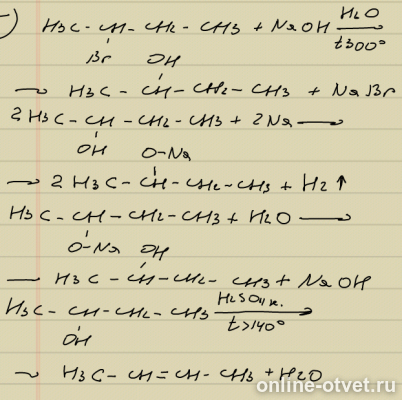 H₃C – CH – CH₂ – CH3 + NaOH H₂O
Br t300°
OH
→ H₃C – CH – CH₂ – CH3 + NaBr
2H₃C – CH – CH₂ – CH3 + 2Na →
OH O–Na
→ 2H₃C – CH – CH₂ – CH3 + H2↑
H₃C – CH – CH₂ – CH3 + H₂O →
O–Na OH
→ H₃C – CH – CH₂ – CH3 + NaOH
H₃C – CH – CH₂ – CH3 H₂SO₄ к. →
OH t>140°
→ H₃C – CH = CH – CH3 + H2O
online-otvet.ru